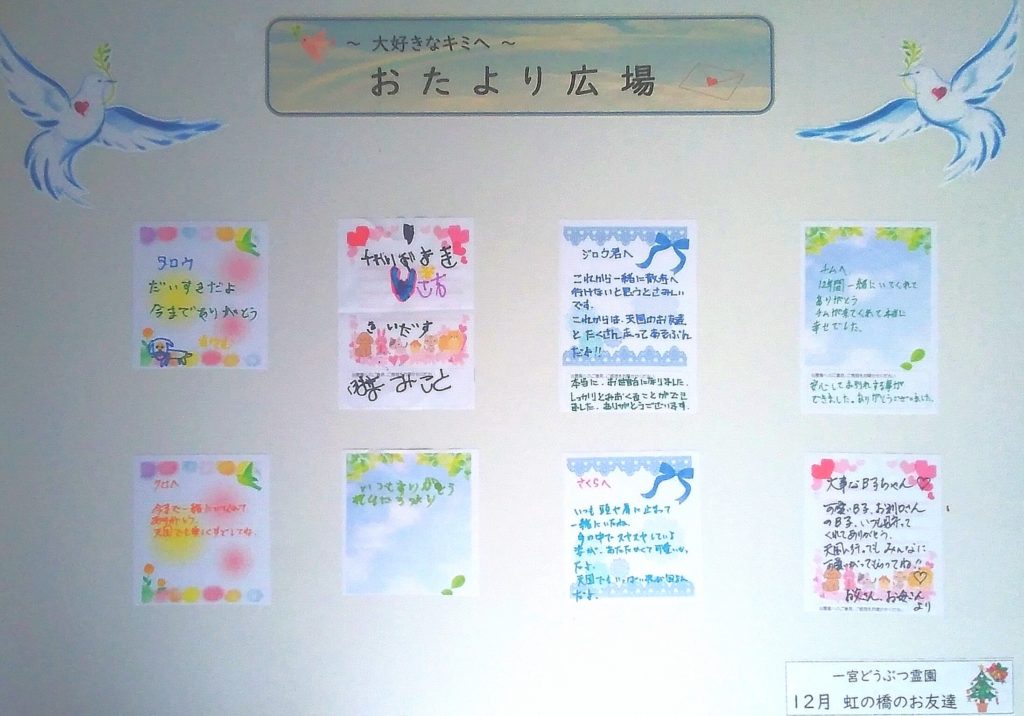 ～ 大好きなキミへ ～
おたより広場
タロウ
だいすきだよ
今までありがとう
みこと
ジロウ君へ
これから一緒に散歩へ
行けないと思うとさみしい
です。
これからは、天国のお友達
とたくさん
だよ!!
本当に、お世話になりました。
しっかりと
ました。ありがとうございます。
チムへ
12年間一緒にいてくれて
ありがとう
チムが来てくれて本当に
幸せでした。
安心してお別れする事が
できました。ありがとうございました。
クロへ
今まで一緒に
ありがとう。
天国でも楽しくすごしてね。
いつもありがとう
さくらへ
いつも頭や肩に止まって
一緒にいたね。
手の中でスヤスヤしている
姿が、あたたかくて可愛いか
たよ。
天国でもいっぱい
だよ。
大事なB子ちゃん♡
可愛いB子、お利口さん
のB子、いつも見守って
くれてありがとう。
天国に行っても みんなに
可愛がってもらってね!!
お父さん、お母さん
より
一宮どうぶつ霊園
12月 虹の橋のお友達